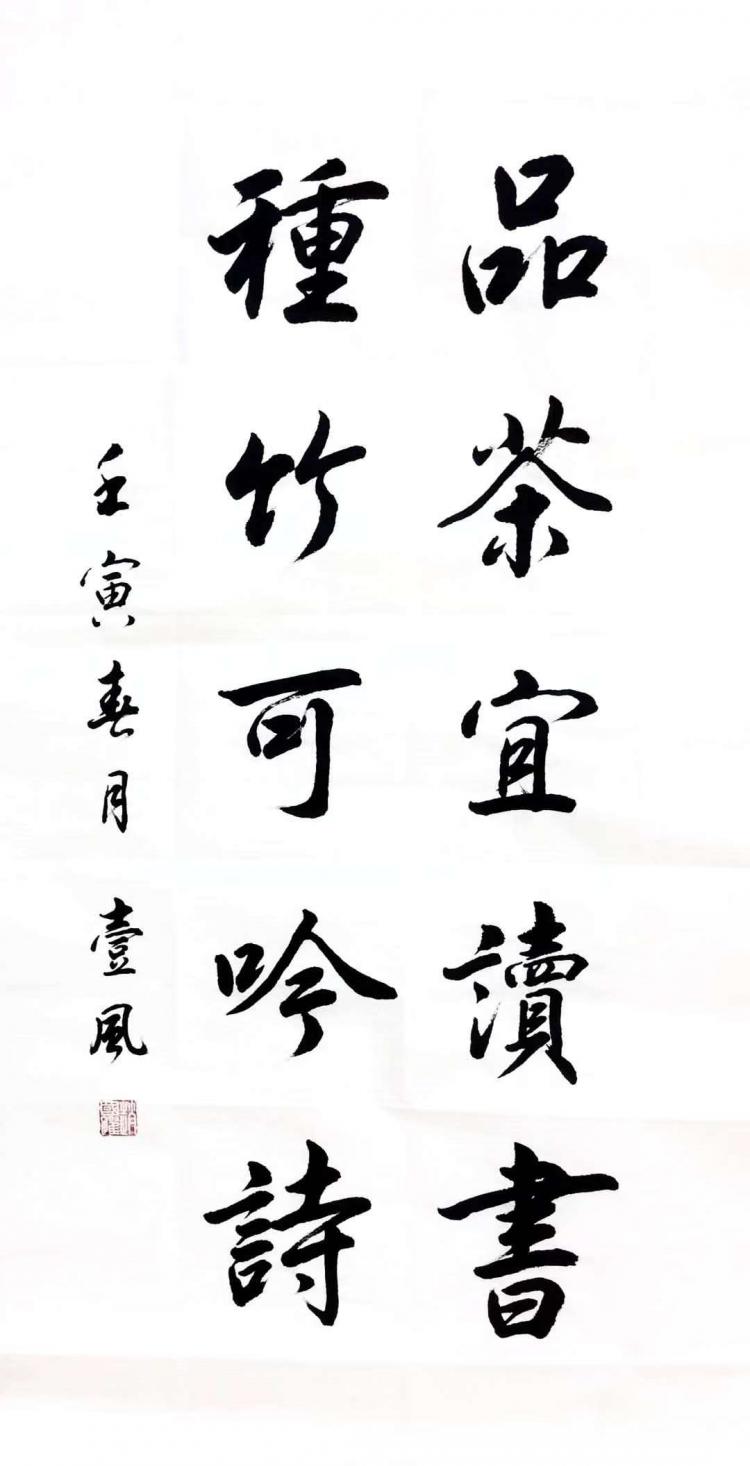 品茶宜讀書
種竹可吟詩
壬寅春月 壹風